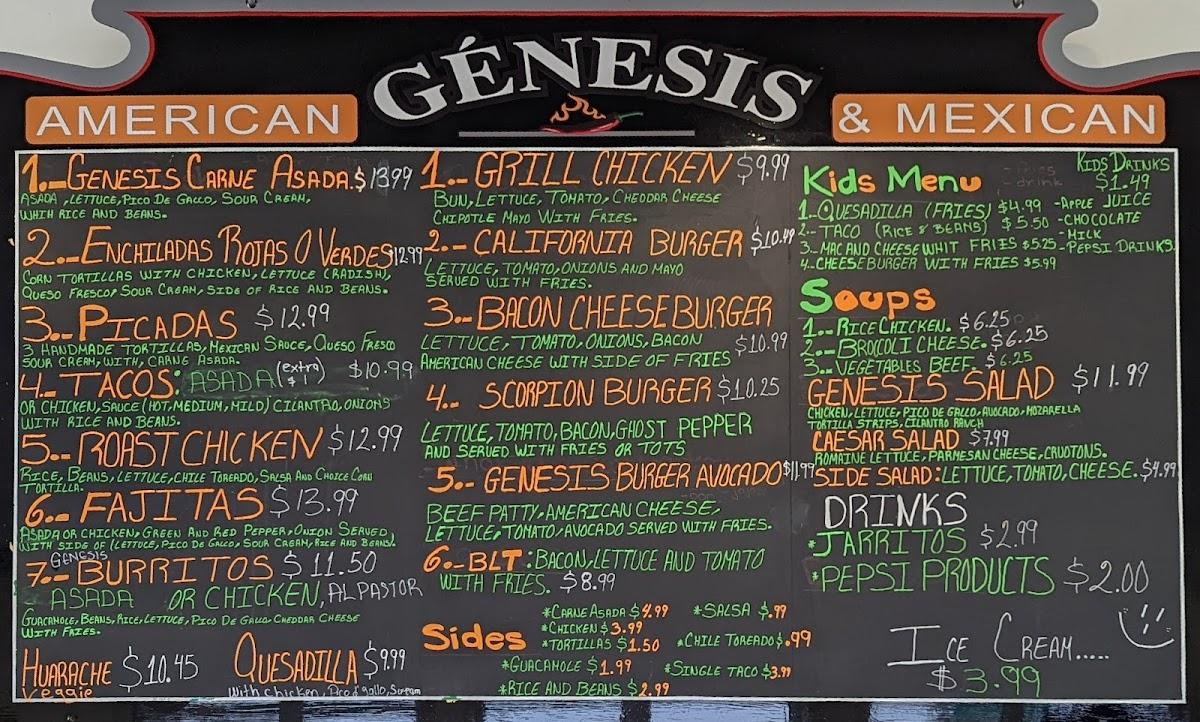 GÉNESIS
AMERICAN
& MEXICAN
1.-GENESIS CARNE ASADA.$13.99
ASADA, LETTUCE, PICO DE GALLO, SOUR CREAM,
WHIH RICE AND BEANS.
2.-ENCHILADAS ROJAS O VERDES $12.99
CORN TORTILLAS WITH CHICKEN, LETTUCE (RADISH),
QUESO FRESCO, SOUR CREAM, SIDE OF RICE AND BEANS.
3.-PICADAS $12.99
3 HANDMADE TORTILLAS, MEXICAN SAUCE, QUESO FRESCO
SOUR CREAM, WITH, CARNE ASADA.
4.-TACOS: ASADA (extra $1) $10.99
OR CHICKEN, SAUCE (HOT, MEDIUM, MILD) CILANTRO, ONIONS
WITH RICE AND BEANS.
5.-ROAST CHICKEN $12.99
RICE, BEANS, LETTUCE, CHILE TOREADO, SALSA AND CHOICE CORN
TORTILLA.
6.-FAJITAS $13.99
ASADA OR CHICKEN, GREEN AND RED PEPPER, ONION SERVED
WITH SIDE OF (LETTUCE, PICO DE GALLO, SOUR CREAM, RICE AND BEANS).
GENESIS
7.-BURRITOS $11.50
ASADA OR CHICKEN, AL PASTOR
GUACAMOLE, BEANS, RICE, LETTUCE, PICO DE GALLO, CHEDDAR CHEESE
WITH FRIES.
HUARACHE $10.45 QUESADILLA $9.99
Veggie With chicken, Pico d' gallo,
1.- GRILL CHICKEN $9.99
BUN, LETTUCE, TOMATO, CHEDDAR CHEESE
CHIPOTLE MAYO WITH FRIES.
2.- CALIFORNIA BURGER $10.49
LETTUCE, TOMATO, ONIONS AND MAYO
SERVED WITH FRIES.
3.-BACON CHEESEBURGER
LETTUCE, TOMATO, ONIONS, BACON $10.99
AMERICAN CHEESE WITH SIDE OF FRIES
4.- SCORPION BURGER $10.25
LETTUCE, TOMATO, BACON, GHOST PEPPER
AND SERVED WITH FRIES OR TOTS
5.- GENESIS BURGER AVOCADO $11.99
BEEF PATTY, AMERICAN CHEESE,
LETTUCE, TOMATO, AVOCADO SERVED WITH FRIES.
6.-BLT: BACON, LETTUCE AND TOMATO
WITH FRIES. $8.99
Sides
*CARNE ASADA $4.99 *SALSA $.99
*CHICKEN $3.99
*TORTILLAS $1.50 *CHILE TOREADO $.99
*GUACAMOLE $1.99 *SINGLE TACO $3.99
*RICE AND BEANS $2.99
Kids Menu
KIDS DRINKS
$1.49
1.-QUESADILLA (FRIES) $4.99 -APPLE JUICE
2.-TACO (RICE & BEANS) $5.50 -CHOCOLATE
-MILK
3.-MAC AND CHEESE WHIT FRIES $5.25 -PEPSI DRINKS
4.-CHEESEBURGER WITH FRIES $5.99
Soups
1.-RICE CHICKEN. $6.25
2.-BROCOLI CHEESE. $6.25
3.-VEGETABLES BEEF. $6.25
GENESIS SALAD $11.99
CHICKEN, LETTUCE, PICO DE GALLO, AVOCADO, MOZARELLA
TORTILLA STRIPS, CILANTRO RANCH
CAESAR SALAD $7.99
ROMAINE LETTUCE, PARMESAN CHEESE, CRUOTONS.
SIDE SALAD: LETTUCE, TOMATO, CHEESE. $4.99
DRINKS
*JARRITOS $2.99
*PEPSI PRODUCTS $2.00
ICE CREAM.....
$3.99